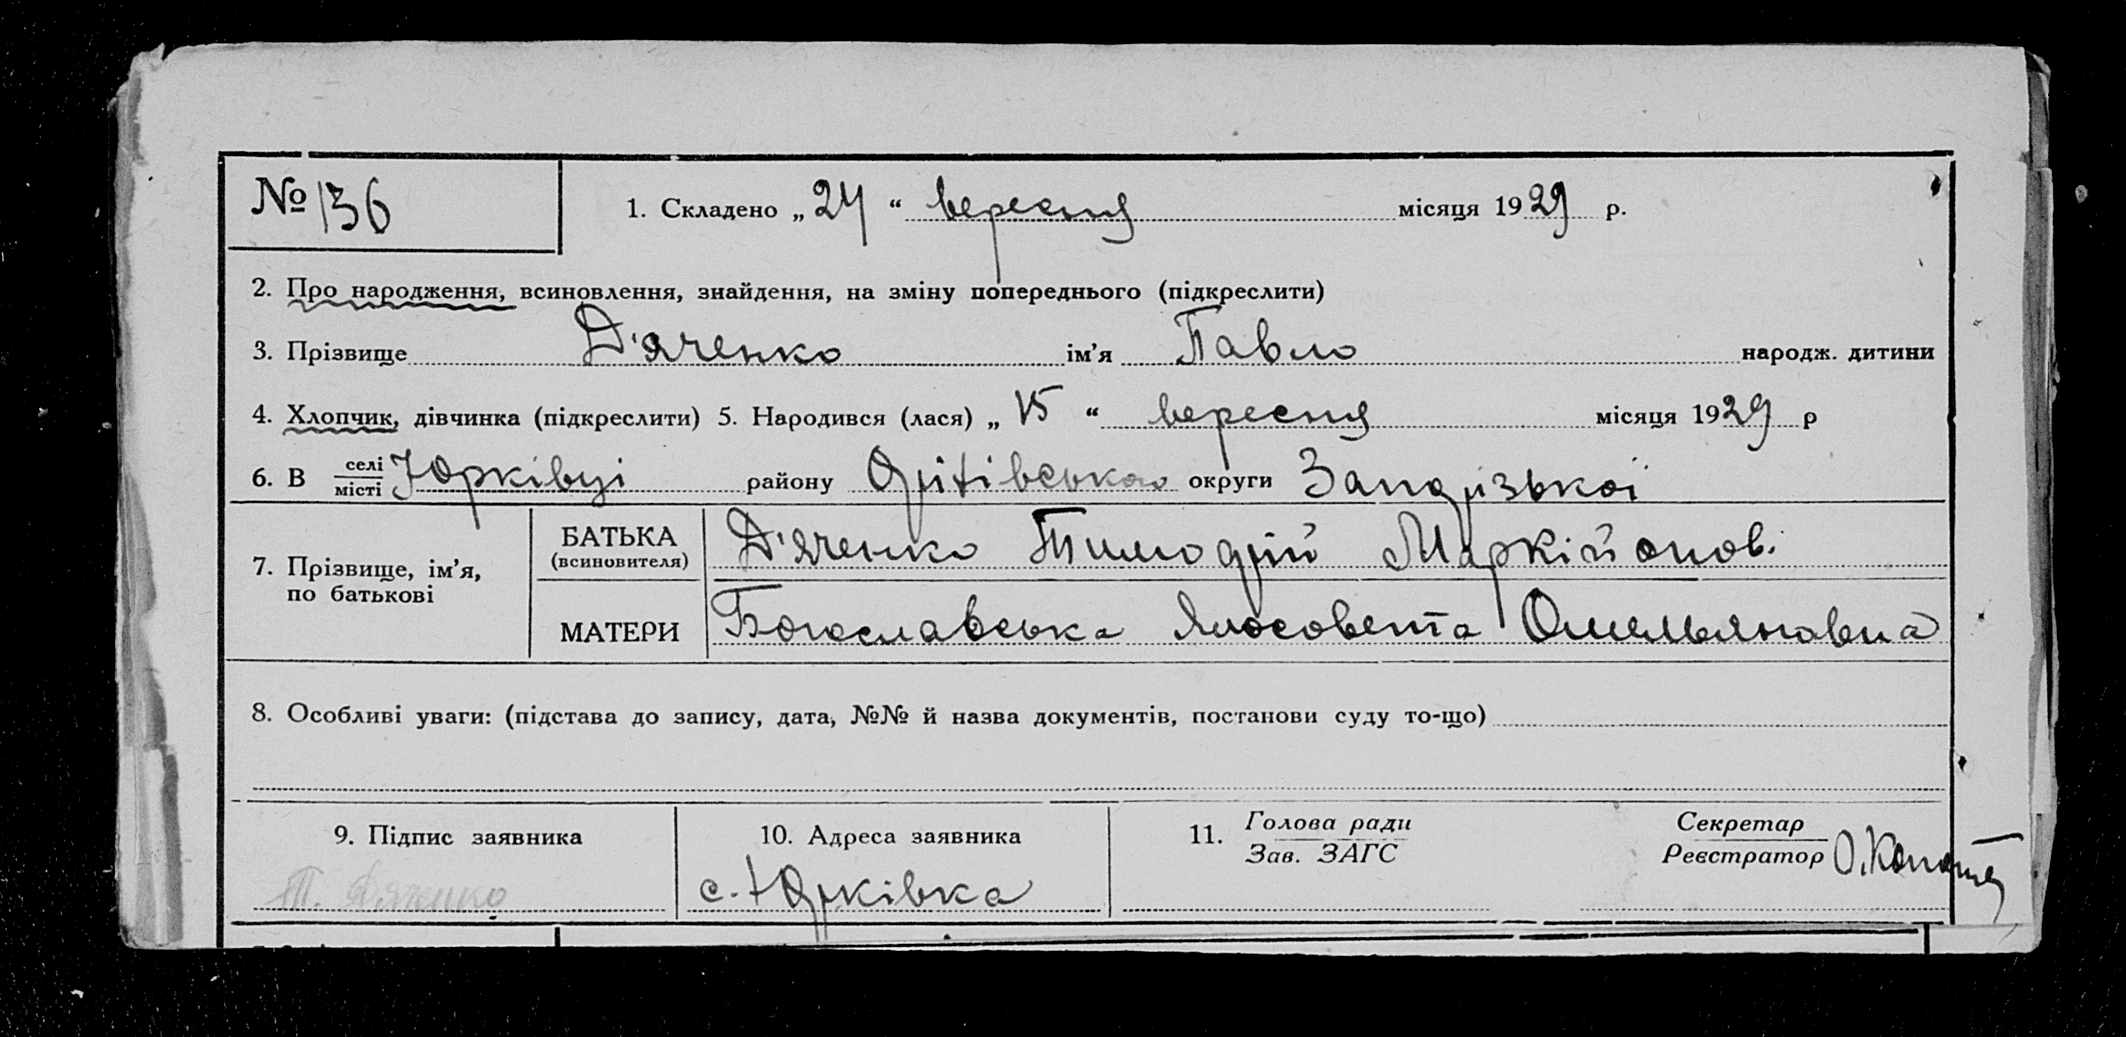 № 136
1. Складено „ 24 “ вересня місяця 1929 р.
2. Про народження, всиновлення, знайдення, на зміну попереднього (підкреслити)
3. Прізвище Д'яченко ім'я Павло народж. дитини
4. Хлопчик, дівчинка (підкреслити) 5. Народився (лася) „ 15 “ вересня місяця 1929 р
6. В селі місті Юрківці району Оріхівського округи Запорізької
7. Прізвище, ім'я, по батькові
БАТЬКА (всиновителя) Д'яченко Тимофій Маркійонов.
МАТЕРИ Богославська Ялосовета Омельяновна
8. Особливі уваги: (підстава до запису, дата, №№ й назва документів, постанови суду то-що)
9. Підпис заявника
Т. Дяченко
10. Адреса заявника
с. Юрківка
11. Голова ради
Зав. ЗАГС
Секретар
Реєстратор О.